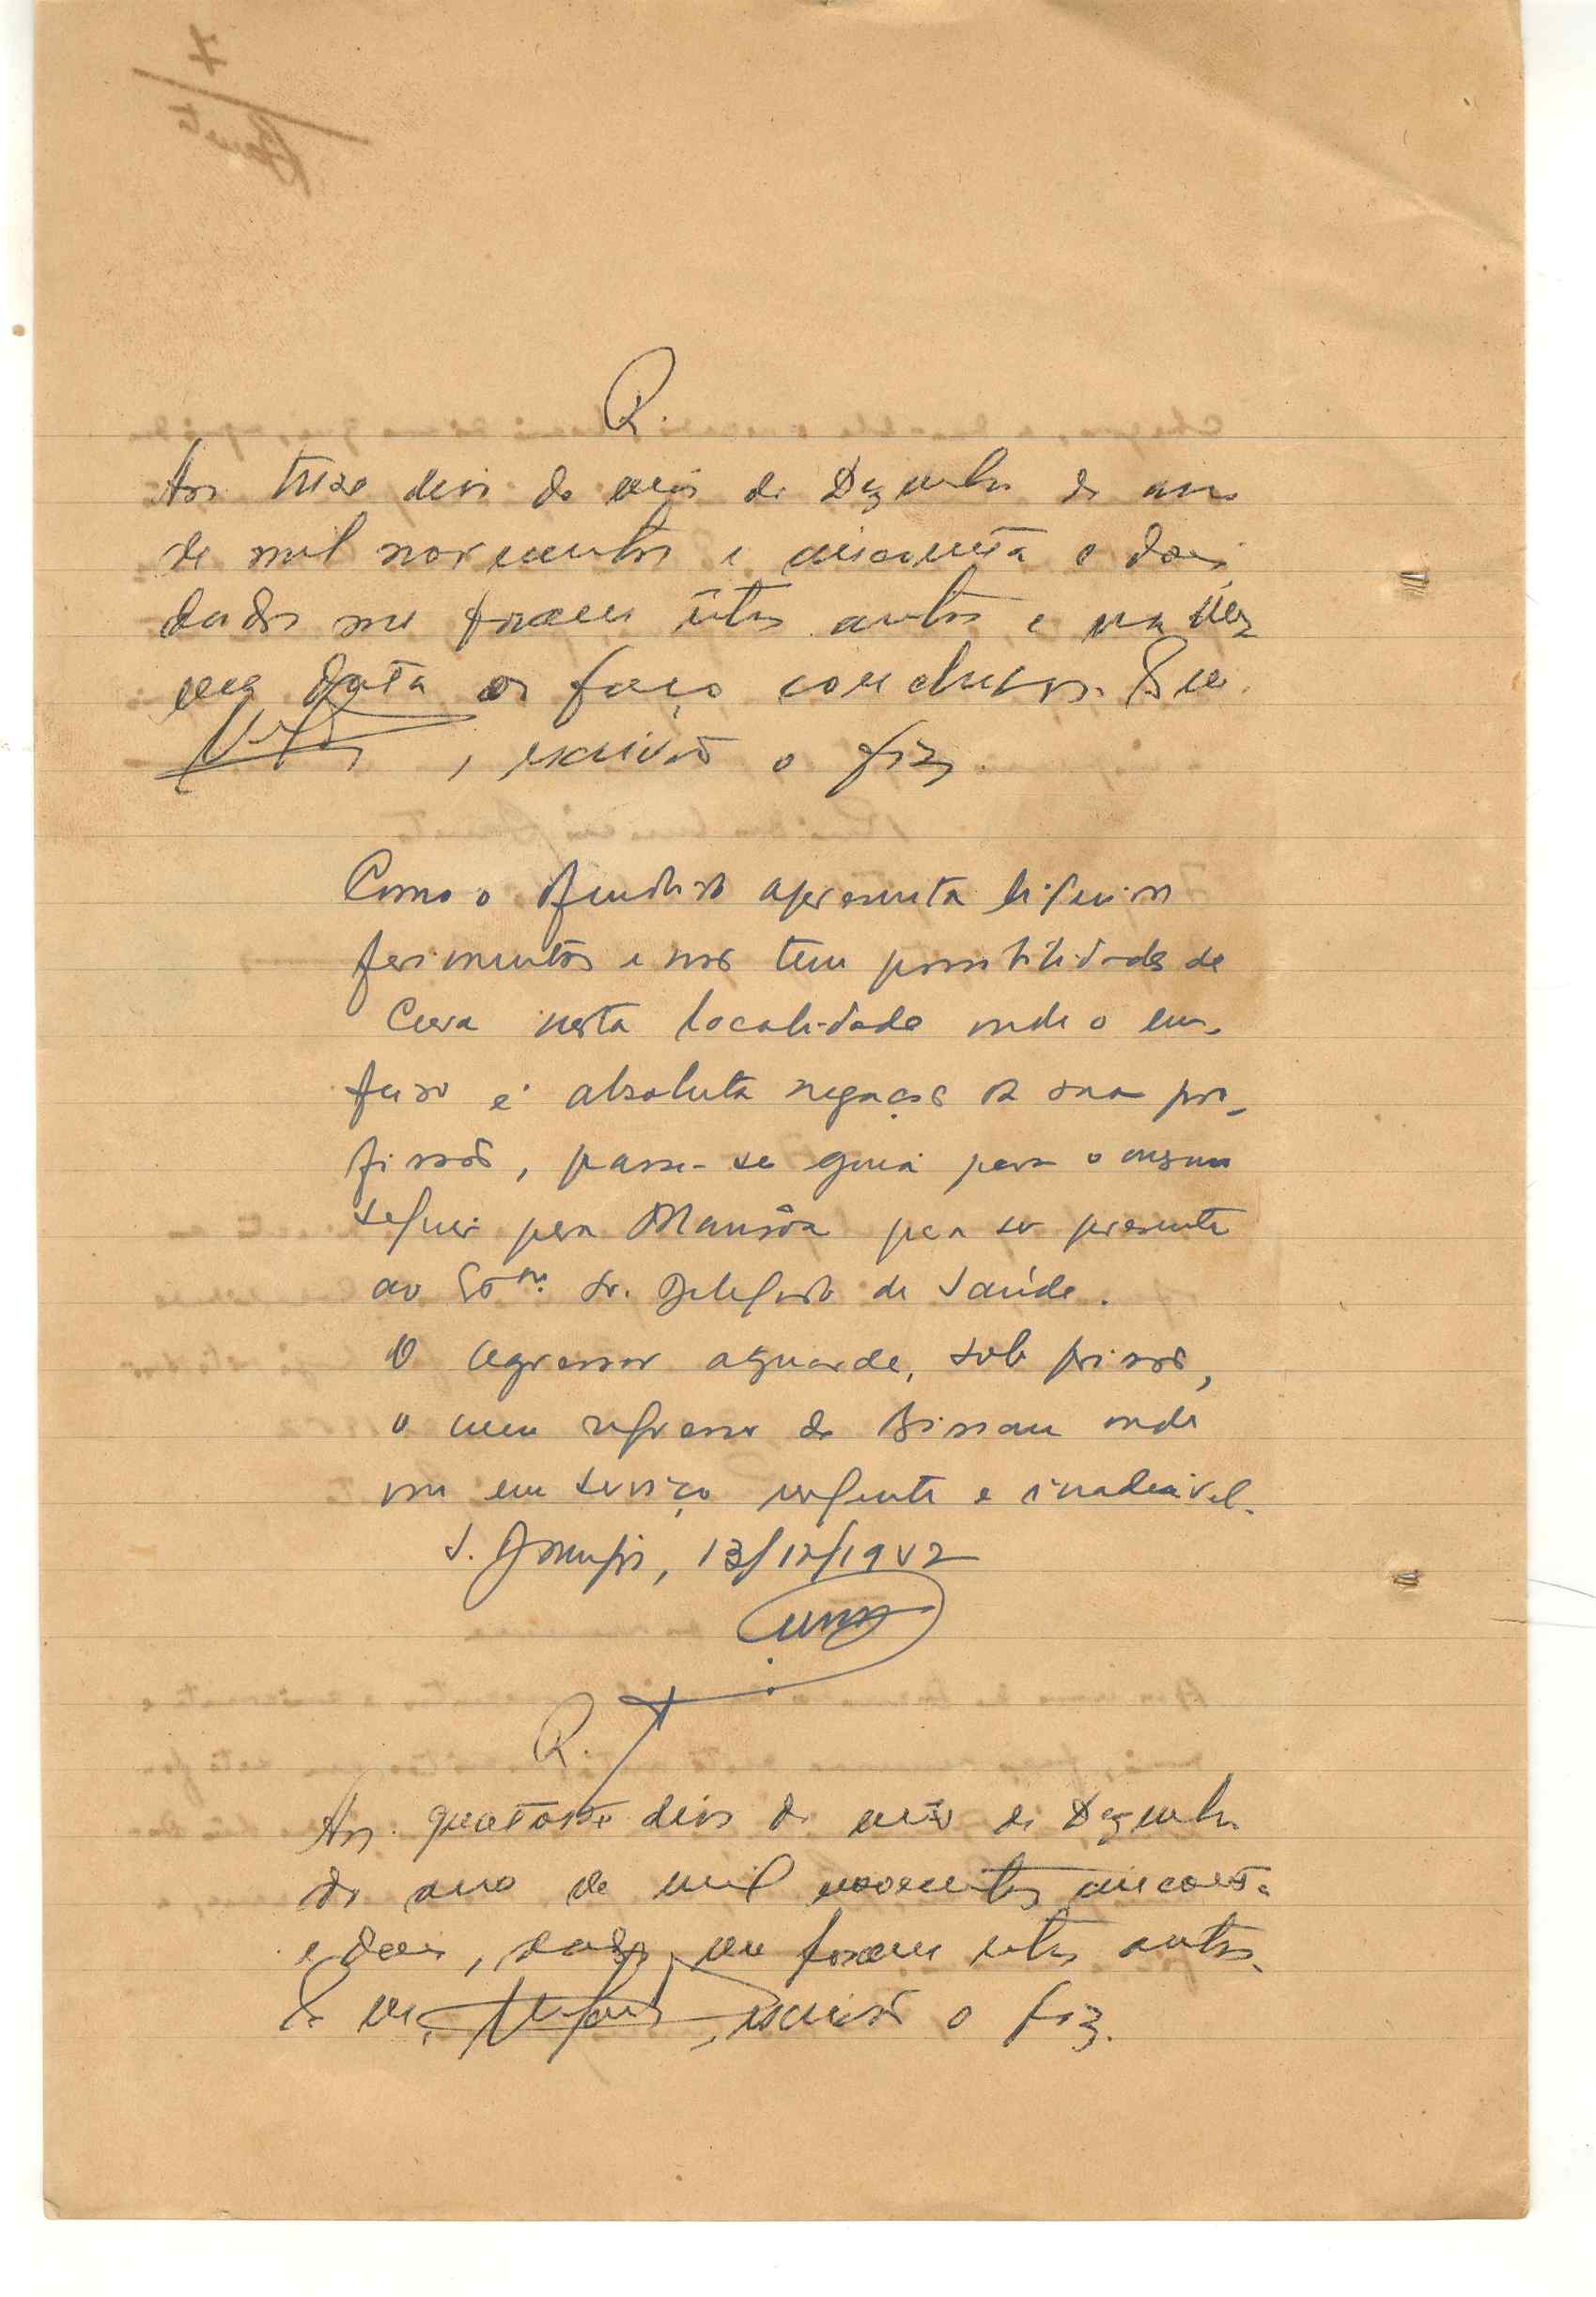 R.
Aos treze dias do mês de Dezembro do ano
de mil novecentos e cincoenta e dois,
dados me foram êstes autos e na mes
ma data os faço conclusos. Eu
, escrivão o fiz.
Como o ofendido apresenta ligeiros
ferimentos e não tem possibilidades de
Cura nesta localidade onde o em-
é absoluta negação da sua pro-
fissão, passe-se guia para o mesmo
seguir para Mansôa para ser presente
ao Exmo. Sr. Delegado de Saúde.
O agressor aguarde, sob prisão,
o meu regresso de Bissau onde
vou em serviço urgente e inadiável.
S. Domingos, 13/12/1952
R.
Aos quatorze dias do mês de Dezembro
do ano de mil novecentos cincoenta
e dois, dados me foram estes autos.
E eu, , escrivão o fiz.